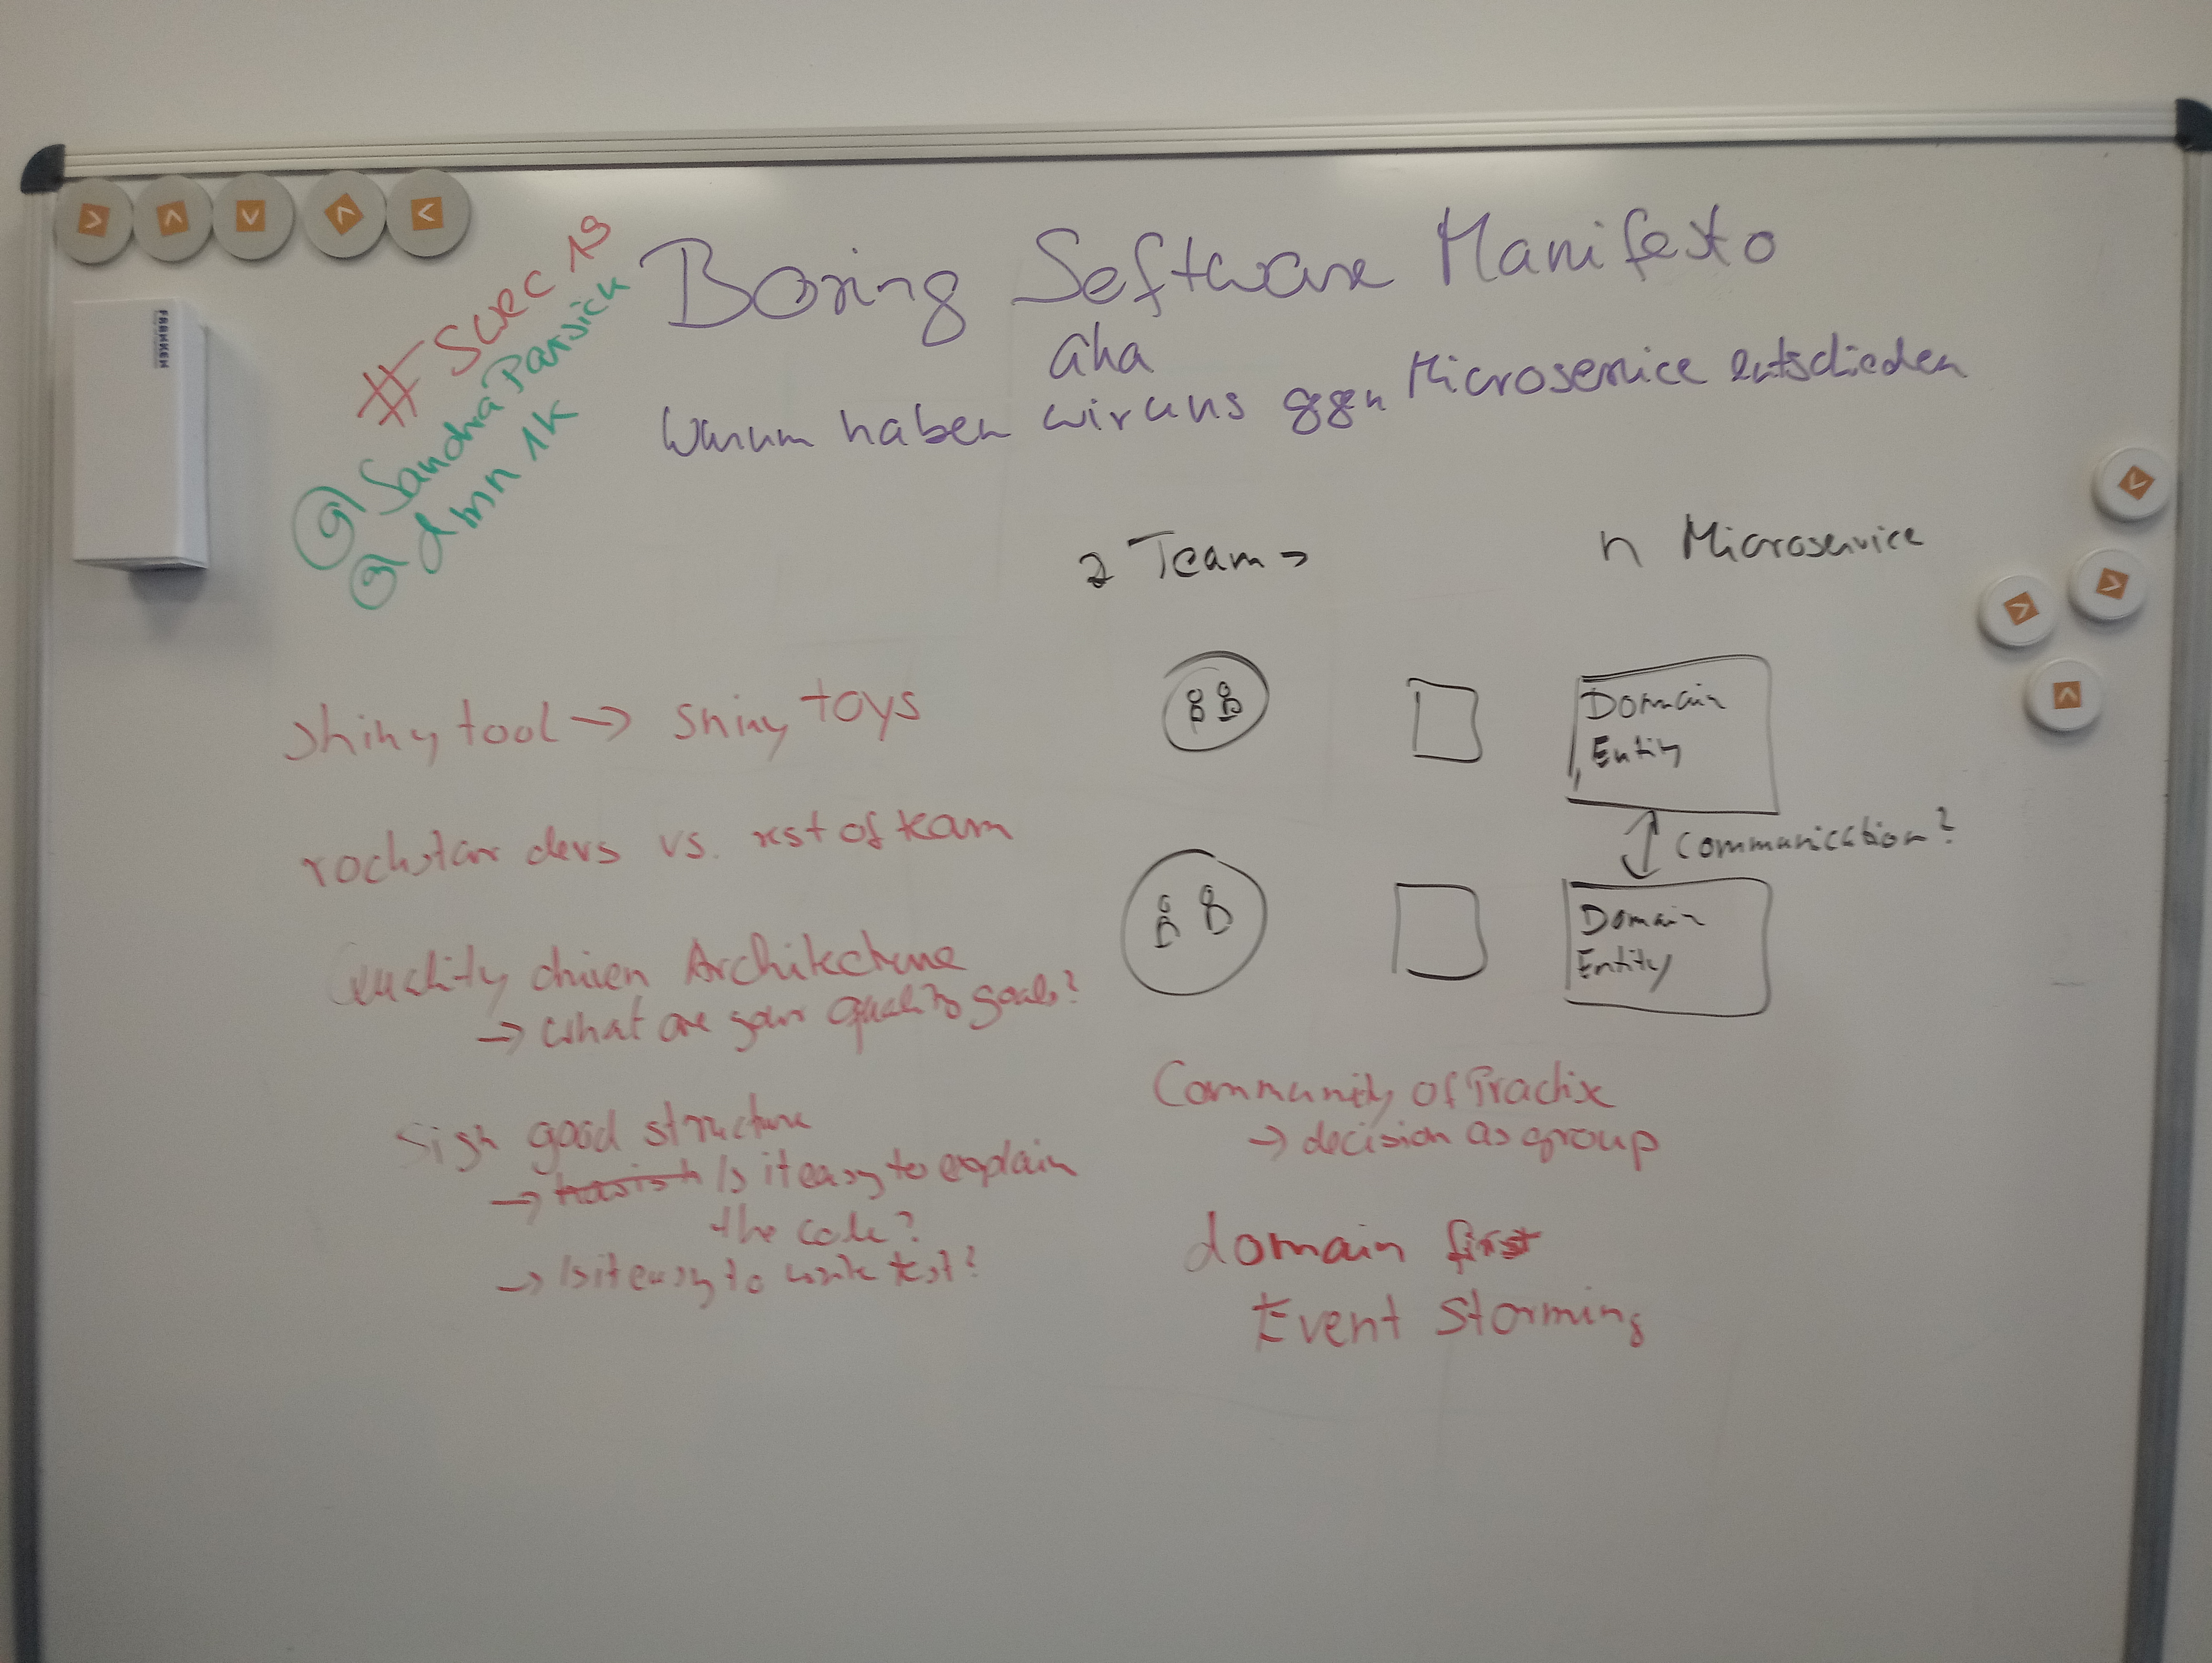 #swec19
@SandraParsick
@dmn1k
Boring Software Manifesto
aka
Warum haben wir uns ggn Microservice entschieden
2 Team →
n Microservice
shiny tool → shiny toys
rockstar devs vs. rest of team
Quality driven Architekcture
→ What are your quality goals?
Sign good structure
→ Is it easy to explain
the code?
→ Is it easy to write test?
Domain
Entity
Communication?
Domain
Entity
Community of Practice
→ decision as group
domain first
Event Storming
FRANKEN